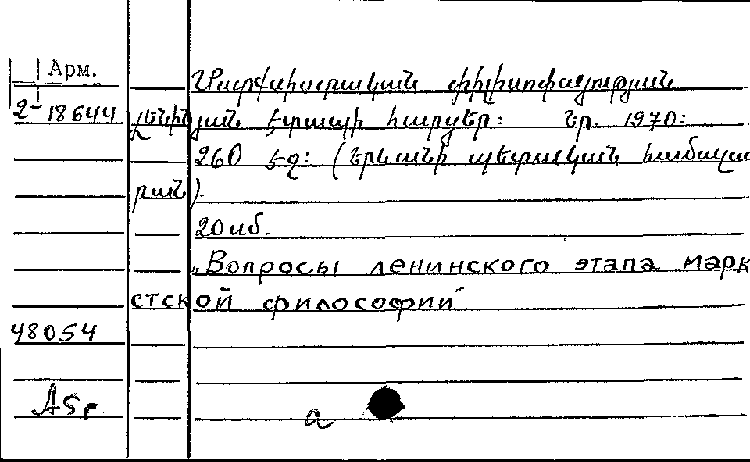 Арм.
Մարքսիստական փիլիսոփայության
2-18644 լենինյան էտապի հարցեր։ Եր. 1970։
260 էջ։ (Երևանի պետական համալսա
րան).
20 սմ.
„Вопросы ленинского этапа марк
стской философии"
48054
А5г
а